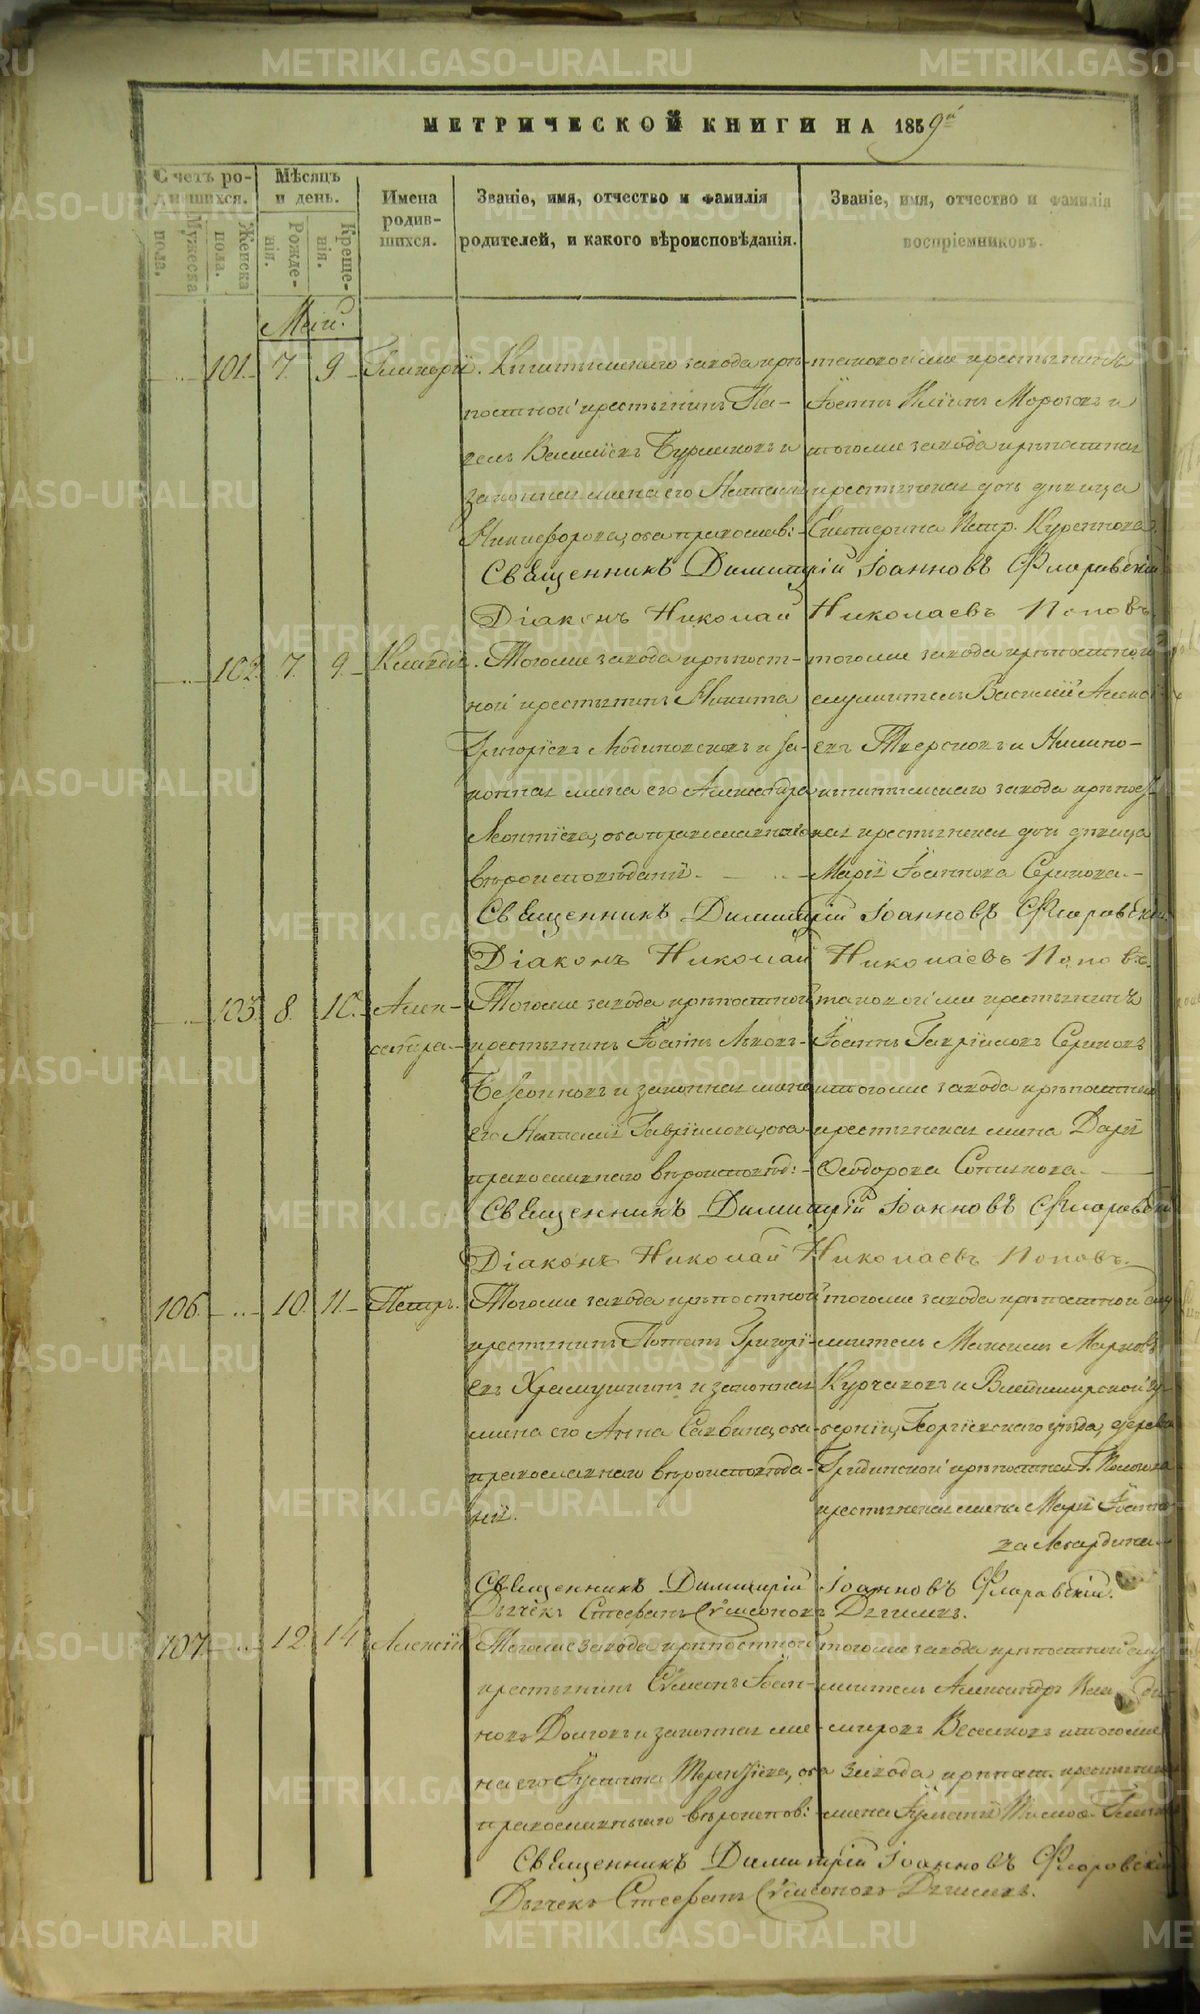 МЕТРИЧЕСКОЙ КНИГИ НА 1859й
Счетъ ро-
дившихся.
Мужеска
пола.
Женска
пола.
Мѣсяцъ
и день.
Рожде-
нія.
Креще-
нія.
Имена
родив-
шихся.
Званіе, имя, отчество и фамилія
родителей, и какого вѣроисповѣданія.
Званіе, имя, отчество и фамилія
воспріемниковъ.
Маій.
101. 7. 9. Гликерія. Кыштымскаго завода крѣ-
постной крестьянинъ Па-
велъ Василіевъ Бурмковъ и
законная жена его Наталія
Никифорова, оба православ:
таковой же крестьянинъ
Іоаннъ Иліинъ Морозовъ и
тогоже завода крѣпостная
крестьянская дочь дѣвица
Екатерина Петр. Куренкова.
Священникъ Димитрій Іоанновъ Флоровскій
Діаконъ Николай Николаевъ Поповъ
102. 7. 9. Клавдія. Тогоже завода крѣпост-
ной крестьянинъ Никита
Григоріевъ и за-
конная жена его Александра
Леонтіева, оба православнаго
вѣроисповѣданія.
тогоже завода крѣпостной
служитель Василій
евъ Тверсковъ и Нижне-
кыштымскаго завода крѣпост-
ная крестьянская дочь дѣвица
Марія Іоаннова Серикова.
Священникъ Димитрій Іоанновъ Флоровскій.
Діаконъ Николай Николаевъ Поповъ.
103. 8. 10. Алек-
сандра.
Тогоже завода крѣпостной
крестьянинъ Іоаннъ Львовъ
и законная жена
его Наталія Гавріилова, оба
православнаго вѣроисповѣд:
таковой же крестьянинъ
Іоаннъ Гавріиловъ Сериковъ
и тогоже завода крѣпостная
крестьянская жена Дарія
Ѳеодорова Сотникова.
Священникъ Димитрій Іоанновъ Флоровскій
Діаконъ Николай Николаевъ Поповъ.
106. 10. 11. Петръ. Тогоже завода крѣпостной
крестьянинъ Потапъ Григорі-
евъ Храмушинъ и законная
жена его Анна Саввина, оба
православнаго вѣроисповѣда-
нія.
тогоже завода крѣпостной слу-
житель Максимъ Марковъ
Курчаковъ и Владимирской гу-
берніи, Георгіевскаго уѣзда, деревни
Гридинской крѣпостная Г.
крестьянская жена Марія Іоанно-
ва
Священникъ Димитрій Іоанновъ Флоровскій.
Дьячекъ Стефанъ Сѵмеоновъ Дягилевъ.
107. 12. 14. Алексій. Тогоже завода крѣпостной
крестьянинъ Сѵмеонъ Іоан-
новъ Долговъ и законная же-
на его Іуліанія Терентіева, оба
православнаго вѣроиспов:
тогоже завода крѣпостной слу-
житель Александръ
міровъ Веселковъ и тогоже
завода крѣпост. крестьянская
жена Іуліанія
Священникъ Димитрій Іоанновъ Флоровскій
Дьячекъ Стефанъ Сѵмеоновъ Дягилевъ.
METRIKI.GASO-URAL.RU